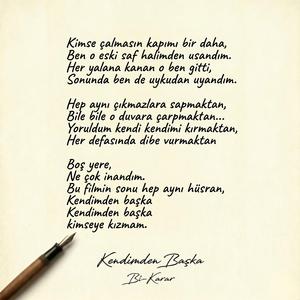 Kimse çalmasın kapımı bir daha,
Ben o eski saf halimden usandım.
Her yalana kanan o ben gitti,
Sonunda ben de uykudan uyandım.
Hep aynı çıkmazlara sapmaktan,
Bile bile o duvara çarpmaktan...
Yoruldum kendi kendimi kırmaktan,
Her defasında dibe vurmaktan
Boş yere,
Ne çok inandım.
Bu filmin sonu hep aynı hüsran,
Kendimden başka
Kendimden başka
kimseye kızmam.
Kendimden Başka
Bi-Karar